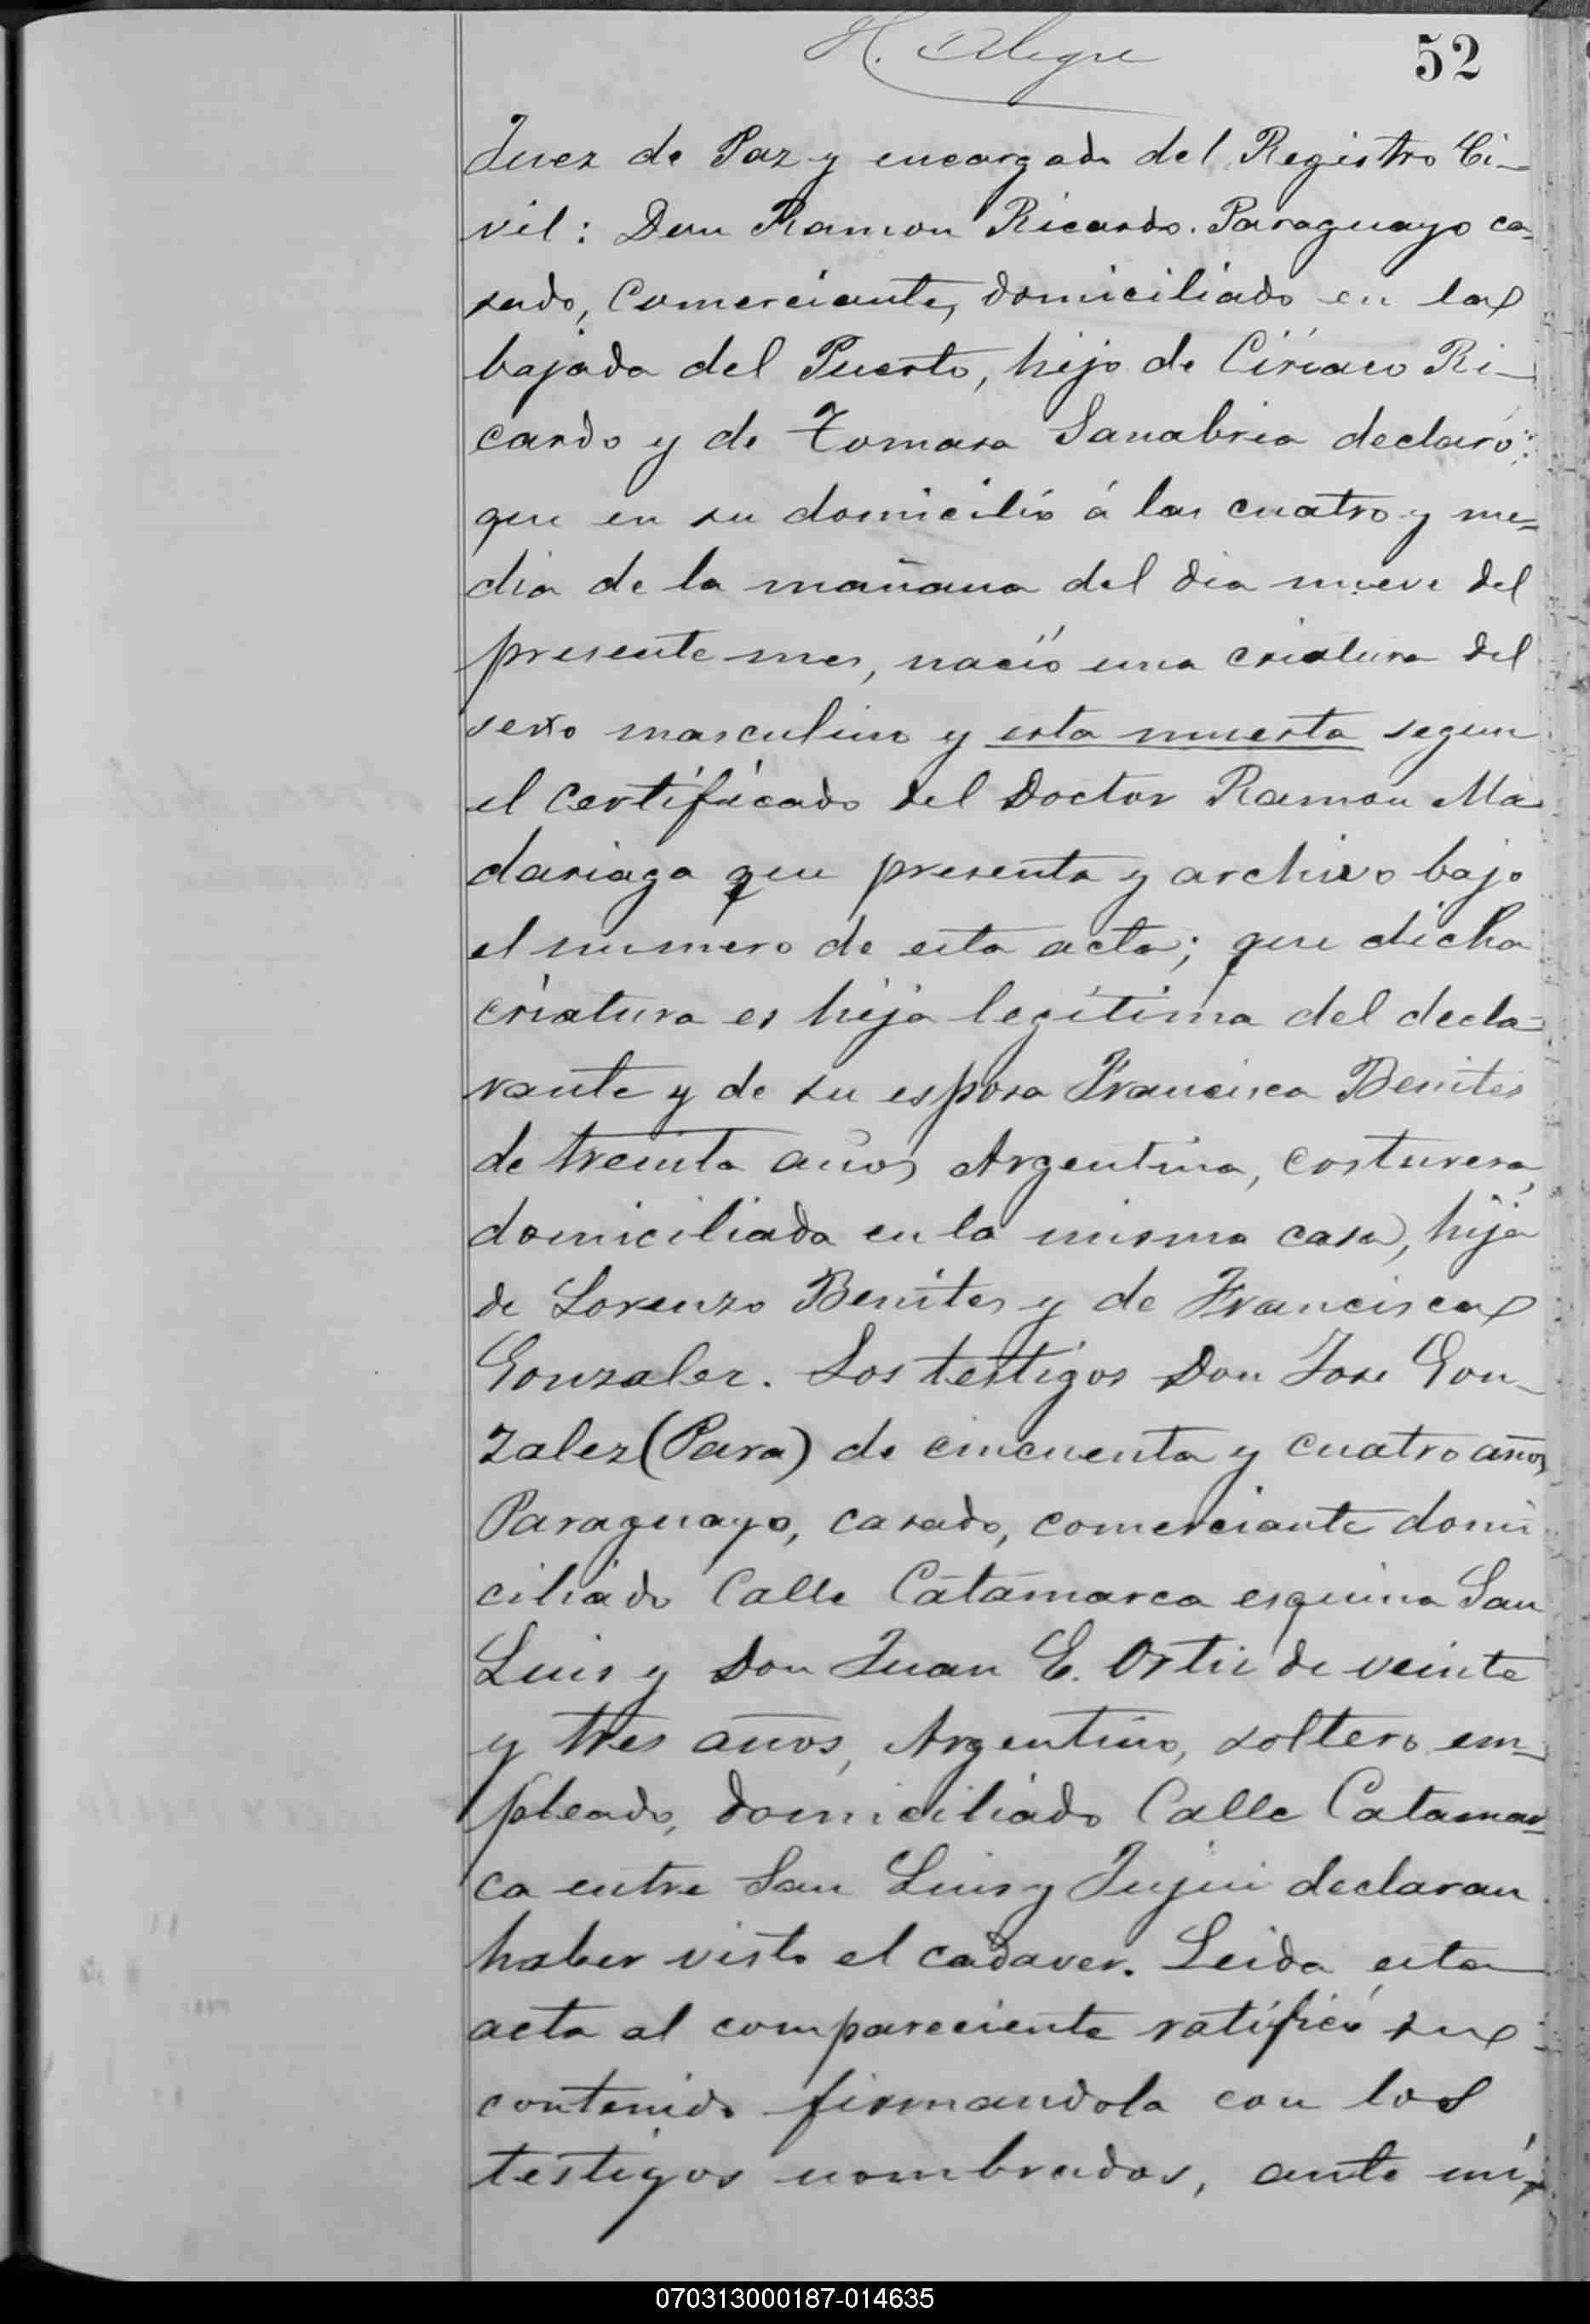 H. Alegre
52
Juez de Paz y encargado del Registro Ci-
vil: Don Ramon Ricardo. Paraguayo ca-
sado, Comerciante, domiciliado en la
bajada del Puerto, hijo de Ciriaco Ri-
cardo y de Tomasa Sanabria declaró:
que en su domicilio á las cuatro y me=
dia de la mañana del dia nueve del
presente mes, nació una criatura del
sexo masculino y esta muerta segun
el certificado del Doctor Ramon Ma
dariaga que presenta y archivo bajo
el numero de esta acta; que dicha
criatura es hija legítima del decla-
rante y de su esposa Francisca Benites
de treinta años Argentina, costurera,
domiciliada en la misma casa, hija
de Lorenzo Benites y de Francisca
Gonzalez. Los testigos Don Jose Gon-
zalez (Para) de cincuenta y cuatro años
Paraguayo, casado, comerciante domi
ciliado Calle Catamarca esquina San
Luis y Don Juan E. Ortiz de veinte
y tres años, Argentino, soltero em-
pleado, domiciliado Calle Catamar=
ca entre San Luis y Jujui declaran
haber visto el cadaver. Leida esta
acta al compareciente ratificó su
contenido firmandola con los
testigos nombrados, ante mi,
070313000187-014635